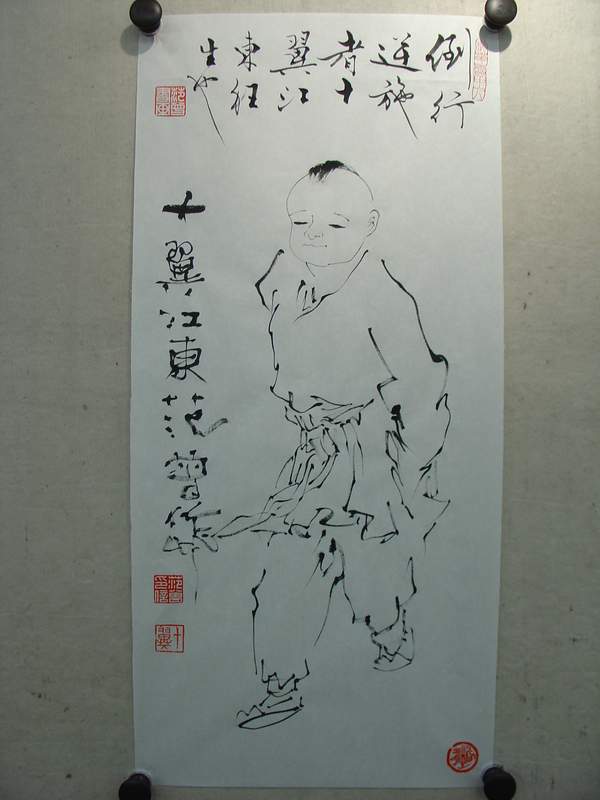 倒行
逆施
者十
翼江
東狂
生也
十翼江東范曾作
十翼